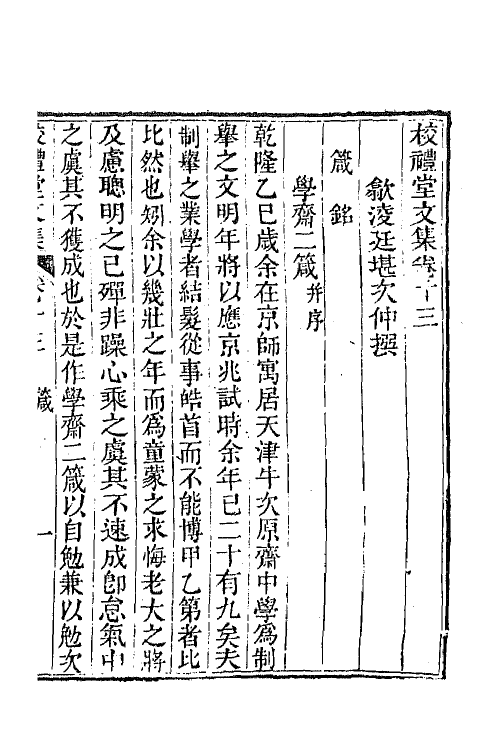 校禮堂文集卷十三
歙淩廷堪次仲撰
箴銘
學齋二箴并序
乾隆乙巳歲余在京師寓居天津牛次原齋中學爲制
舉之文明年將以應京兆試時余年已二十有九矣夫
制舉之業學者結髮從事皓首而不能博甲乙第者比
比然也矧余以幾壯之年而爲童蒙之求悔老大之將
及慮聰明之已殫非躁心乘之虞其不速成卽怠氣中
之虞其不獲成也於是作學齋二箴以自勉兼以勉次
校禮堂文集 卷十三 箴 一